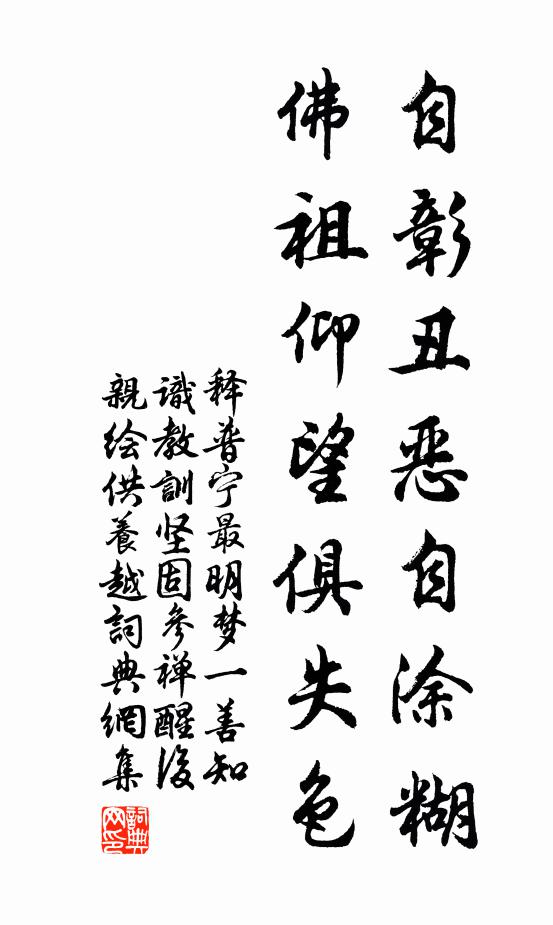 自彰丑恶自涂糊
佛祖仰望俱失色
释普宁最明梦一善知
識教訓坚固参禅醒後
親绘供養越詞典網集
詞典
网印